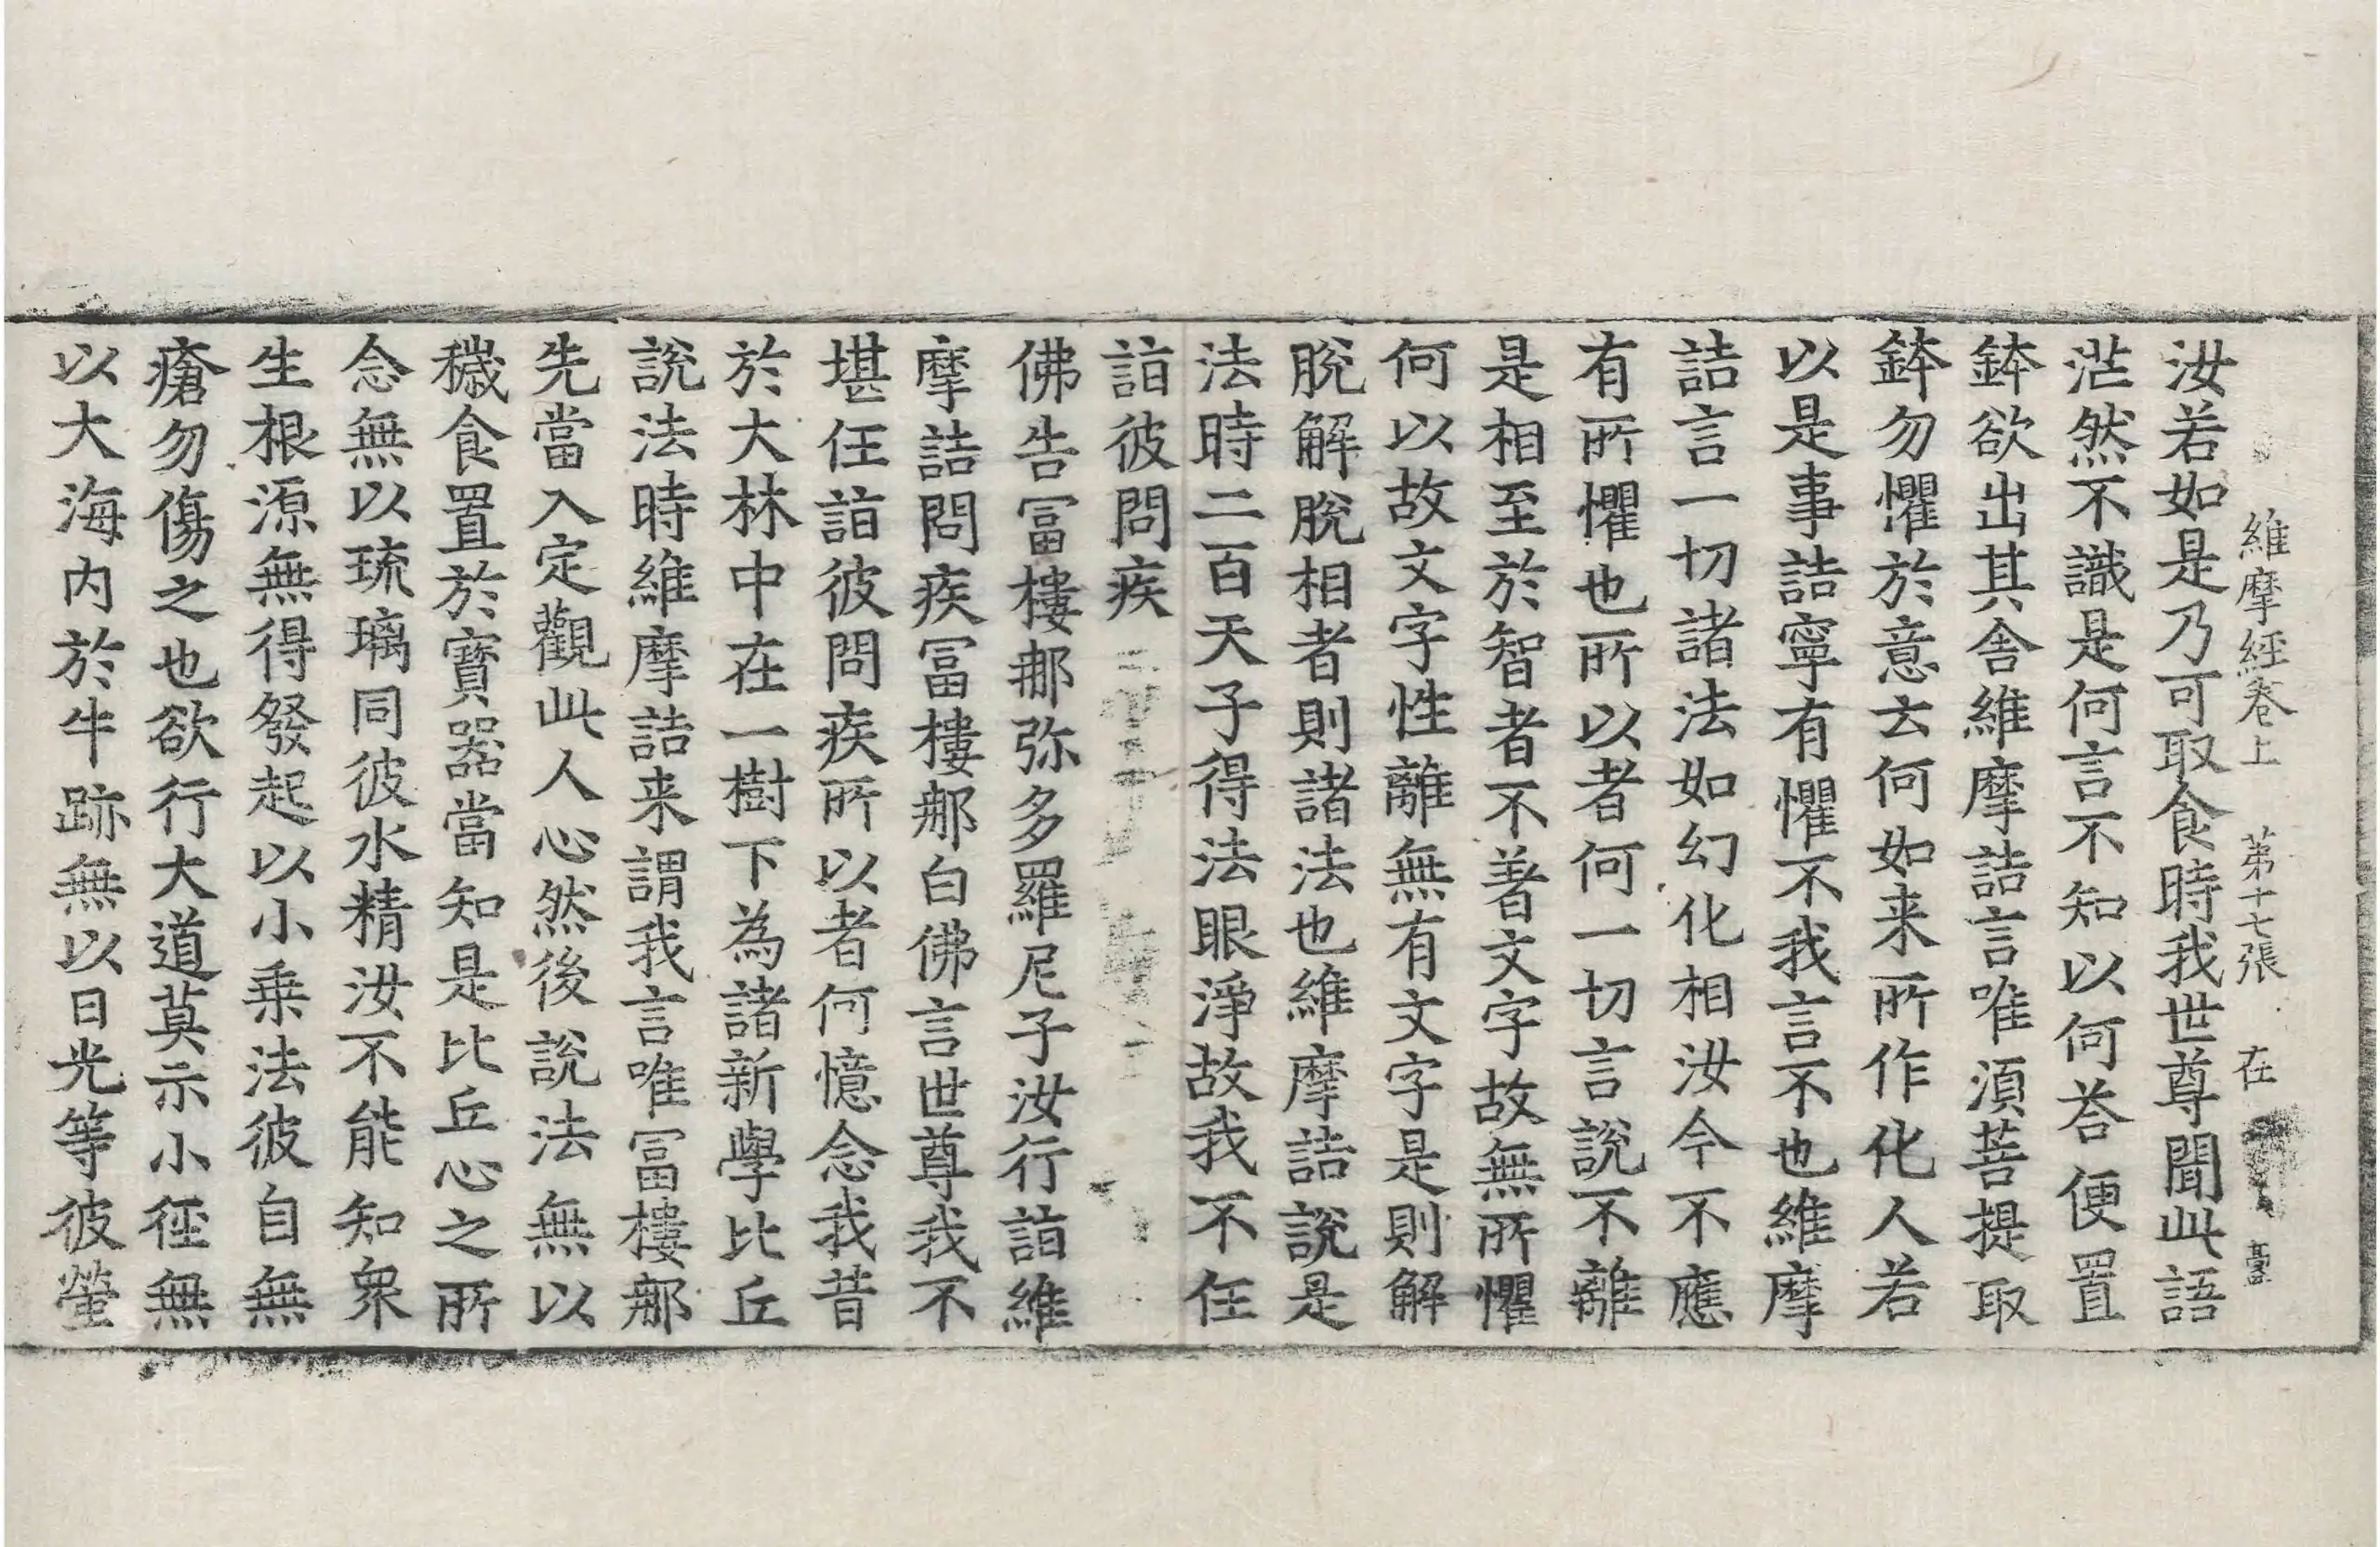 維摩經卷上 第十七張 在
汝若如是乃可取食時我世尊聞此語
茫然不識是何言不知以何荅便置
鉢欲出其舎維摩詰言唯湏菩提取
鉢勿懼於意云何如来所作化人若
以是事詰寧有懼不我言不也維摩
詰言一切諸法如幻化相汝今不應
有所懼也所以者何一切言說不離
是相至於智者不著文字故無所懼
何以故文字性離無有文字是則解
脫解脫相者則諸法也維摩詰說是
法時二百天子得法眼淨故我不任
詣彼問疾
佛告冨樓那弥多羅尼子汝行詣維
摩詰問疾冨樓那白佛言世尊我不
堪任詣彼問疾所以者何憶念我昔
於大林中在一樹下為諸新學比丘
說法時維摩詰来謂我言唯冨樓那
先當入定觀此人心然後說法無以
穢食置於寶器當知是比丘心之所
念無以琉璃同彼水精汝不能知衆
生根源無得發起以小乗法彼自無
瘡勿傷之也欲行大道莫示小徑無
以大海內於牛跡無以日光等彼螢